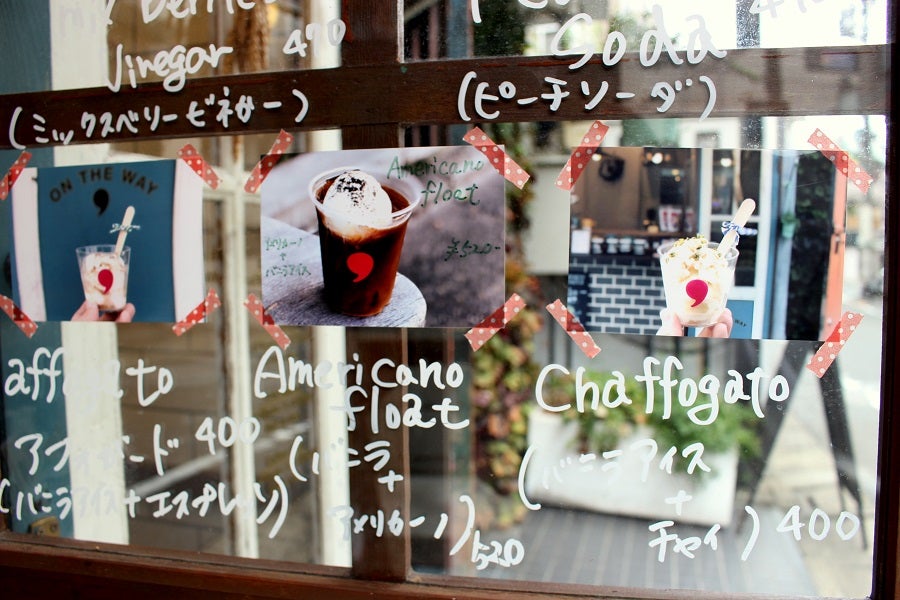 Vinegar 490
(ミックスベリービネガー)
Soda
(ピーチソーダ)
ON THE WAY
Americano
float
アメリカーノ
+
バニラアイス
¥520-
affogato
アフォガード 400
(バニラアイス+エスプレッソ)
Americano
float
(バニラ
+
アメリカーノ)
520
Chaffogato
(バニラアイス
+
チャイ) 400